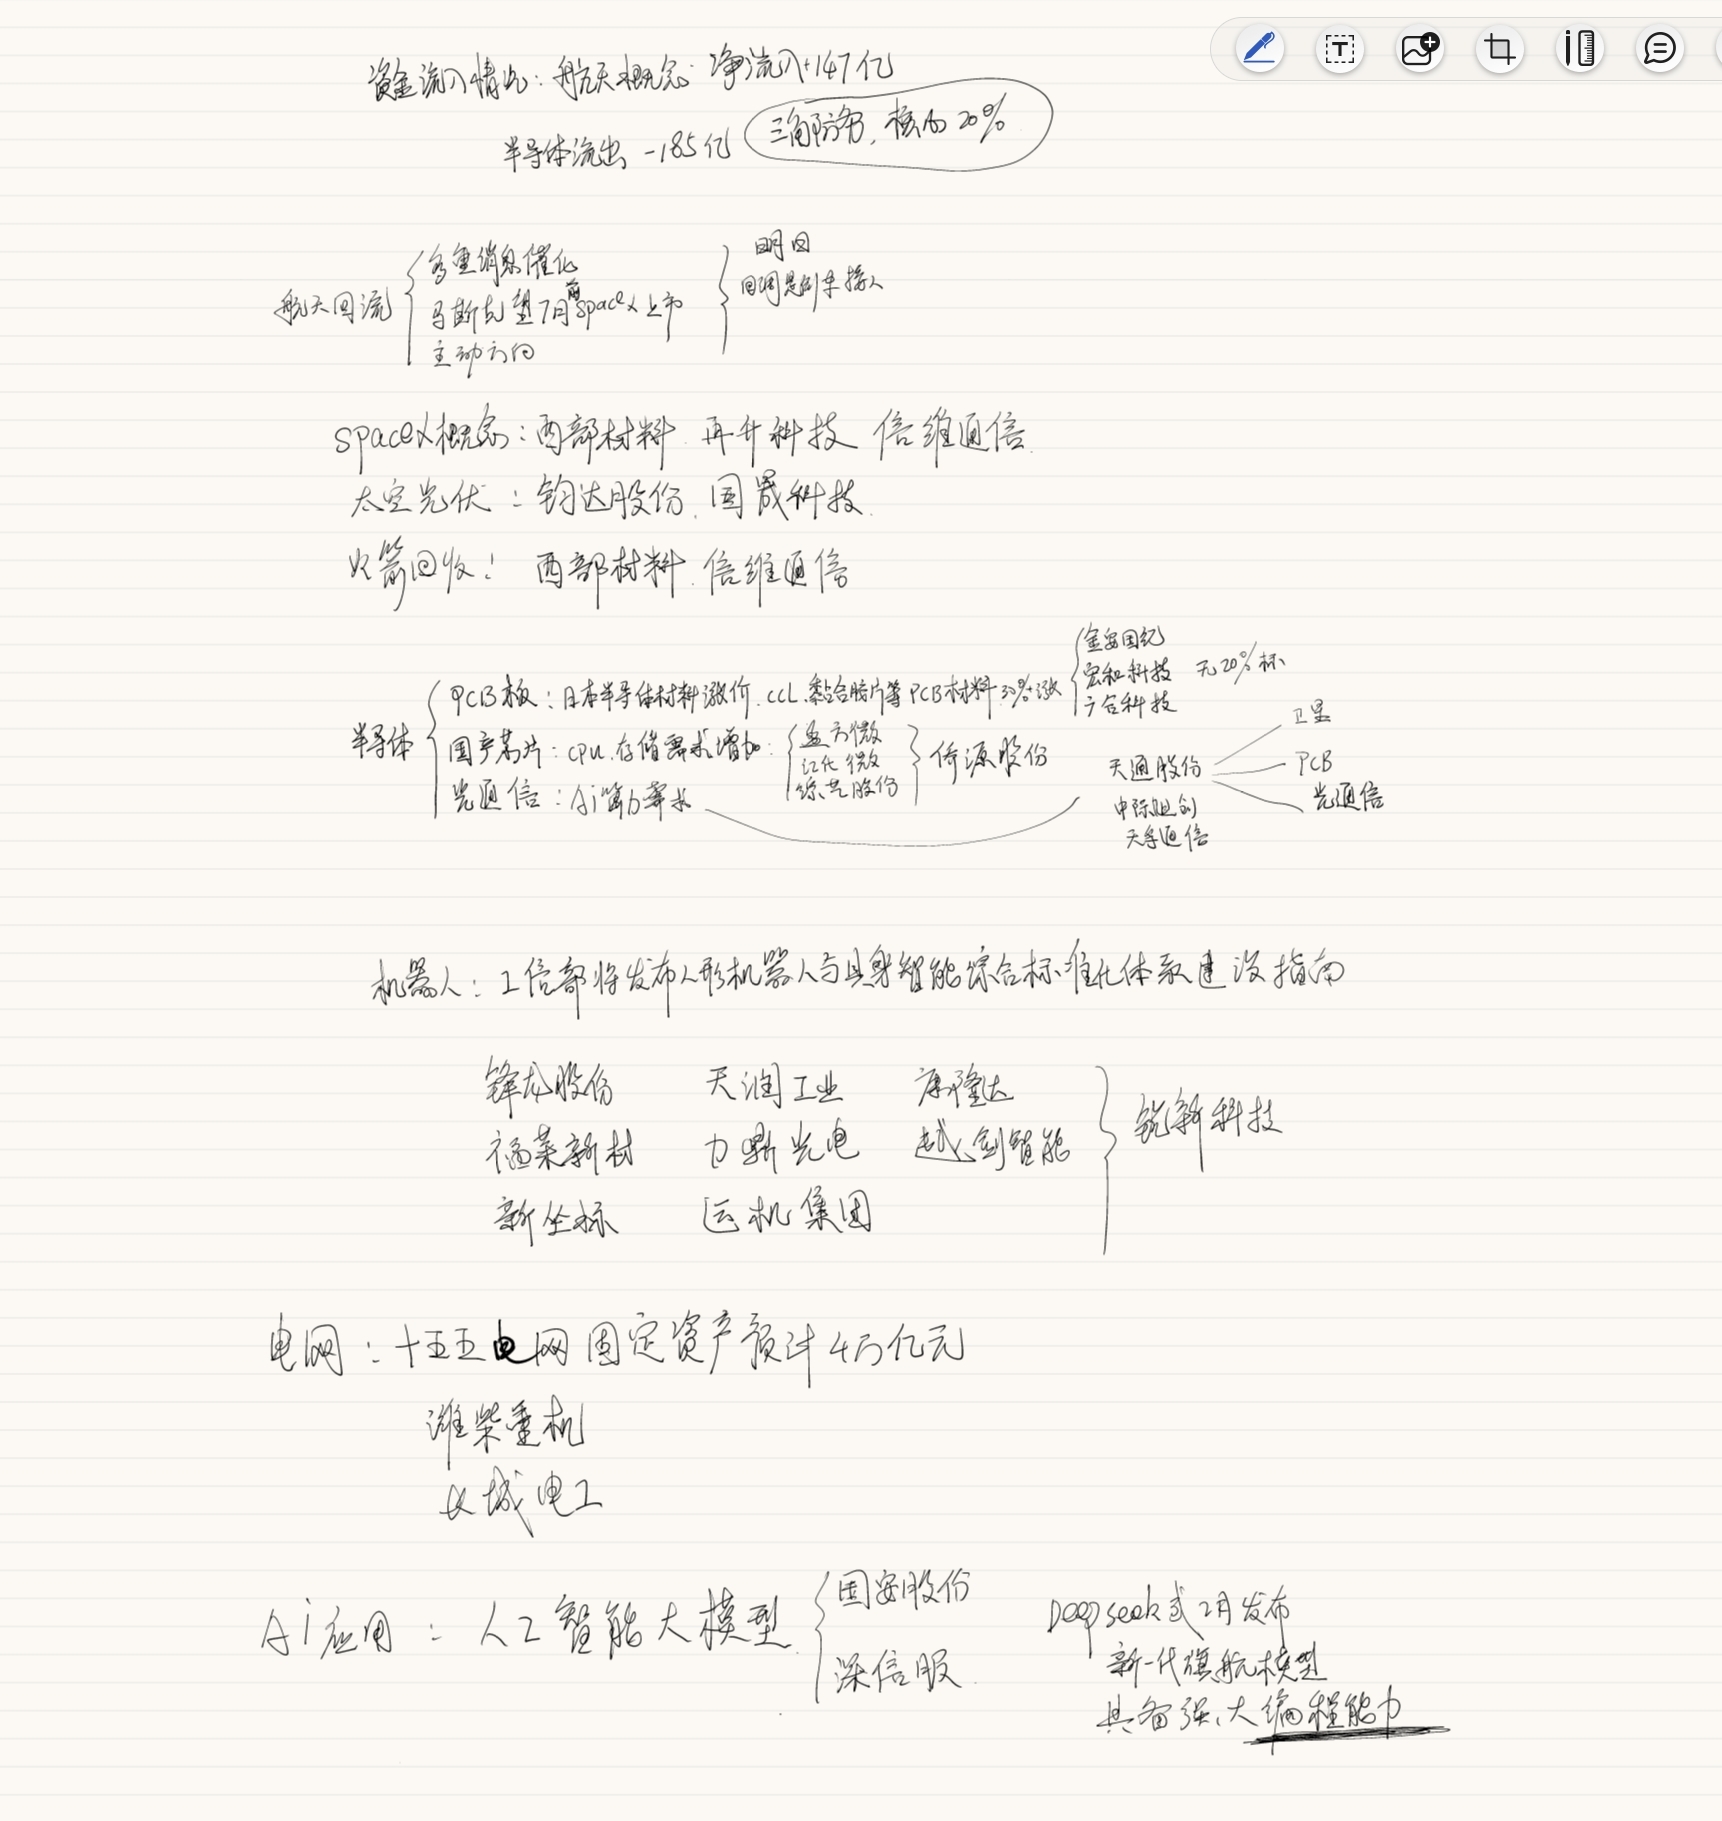 资金流入情况：航天概念 净流入+147亿
半导体流出 -185亿 三角防务，核心20%
航天回流
多重消息催化
马斯克望7月前spacex上市
主动方向
明日
回调是到来接入
spacex概念：西部材料 再升科技 信维通信
太空光伏：钧达股份 国晟科技
火箭回收：西部材料 信维通信
半导体
PCB板：日本半导体材料涨价 CCL、黏合胶片等PCB材料 30%+涨
金安国纪
宏和科技 无20%标
六合科技
国产芯片：cpu、存储需求增加：
盈方微
江化微
综艺股份
倚源股份
光通信：Ai算力需求
天通股份
卫星
PCB
光通信
中际旭创
天孚通信
机器人：工信部将发布人形机器人与具身智能综合标准化体系建设指南
锋龙股份 天润工业 康隆达
福莱新材 力鼎光电 越剑智能
新坐标 运机集团
锐新科技
电网：十五五电网固定资产预计4万亿元
潍柴重机
长城电工
Ai应用：人工智能大模型
国安股份
深信服
Deepseek或2月发布
新一代旗舰模型
具备强大编程能力